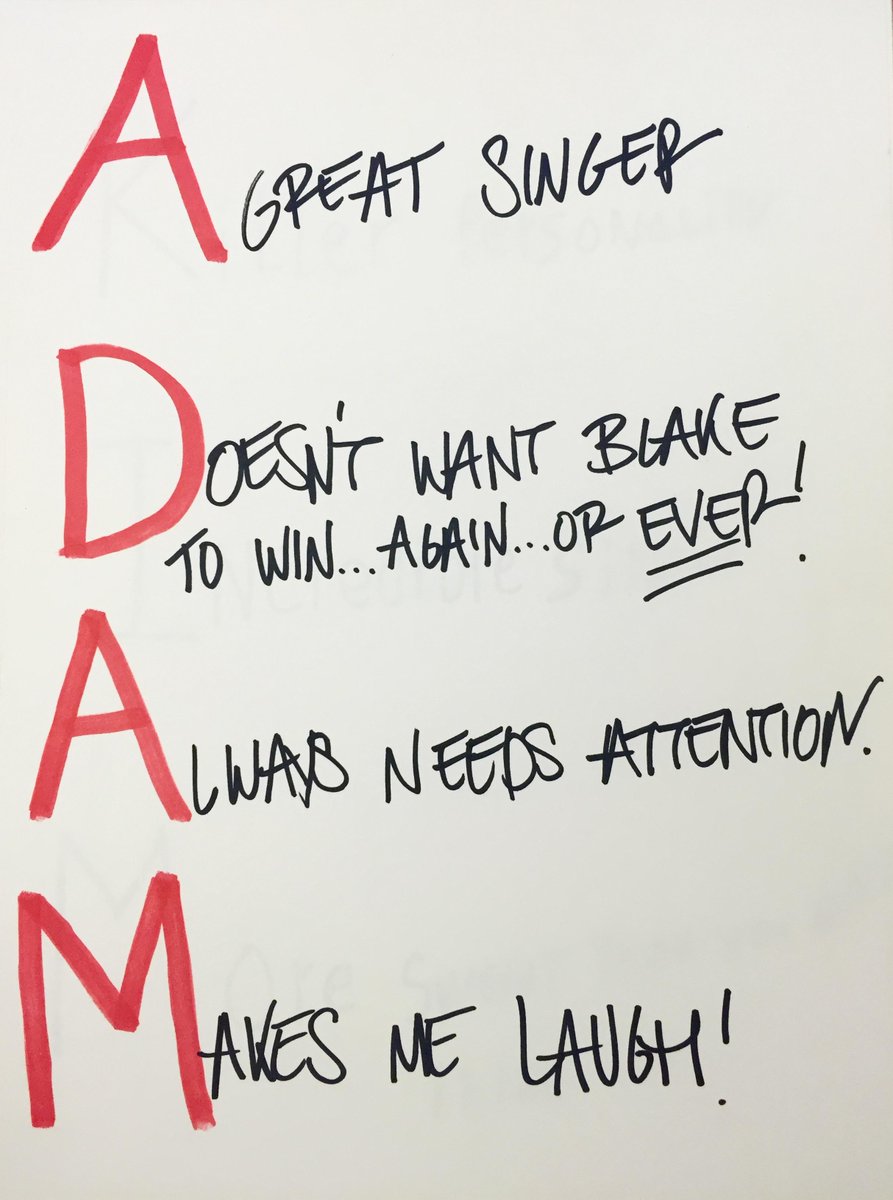 A GREAT SINGER
DOESN'T WANT BLAKE
TO WIN... AGAIN... OR EVER!
ALWAYS NEEDS ATTENTION.
MAKES ME LAUGH!